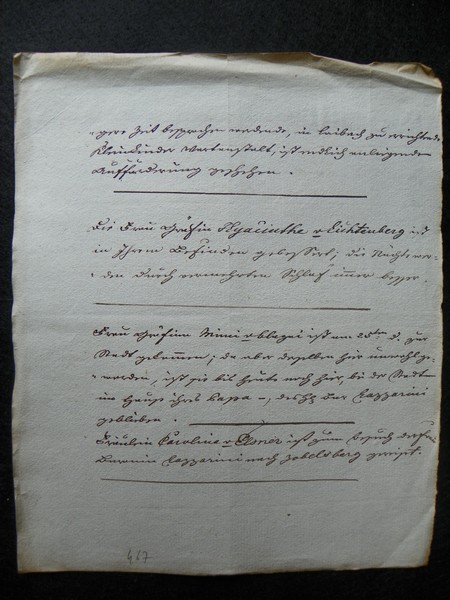 gere Zeit besprochen werdende, in Laibach zu errichtende
Kleinkinder Wartanstalt, ist endlich anliegenden
Aufforderung geschehen.
Die Frau Gräfin Hyacinthe v Lichtenberg ist
in Ihrem Befinden gebessert, die Nächte wer-
den durch vermehrten Schlaf immer besser.
Frau Gräfin Mimi v Blagai ist am 25ten d. zur
Stadt gekommen, da aber dieselbe hier unwohl ge-
worden, ist sie bis heute noch hier, in der Stadt
im Hause ihres Papa –, des H Bar Lazzarini
geblieben.
Fräulein Carolina v ist zum Besuch der Frau
Baronin Lazzarini nach Zobelsberg gereist.
467